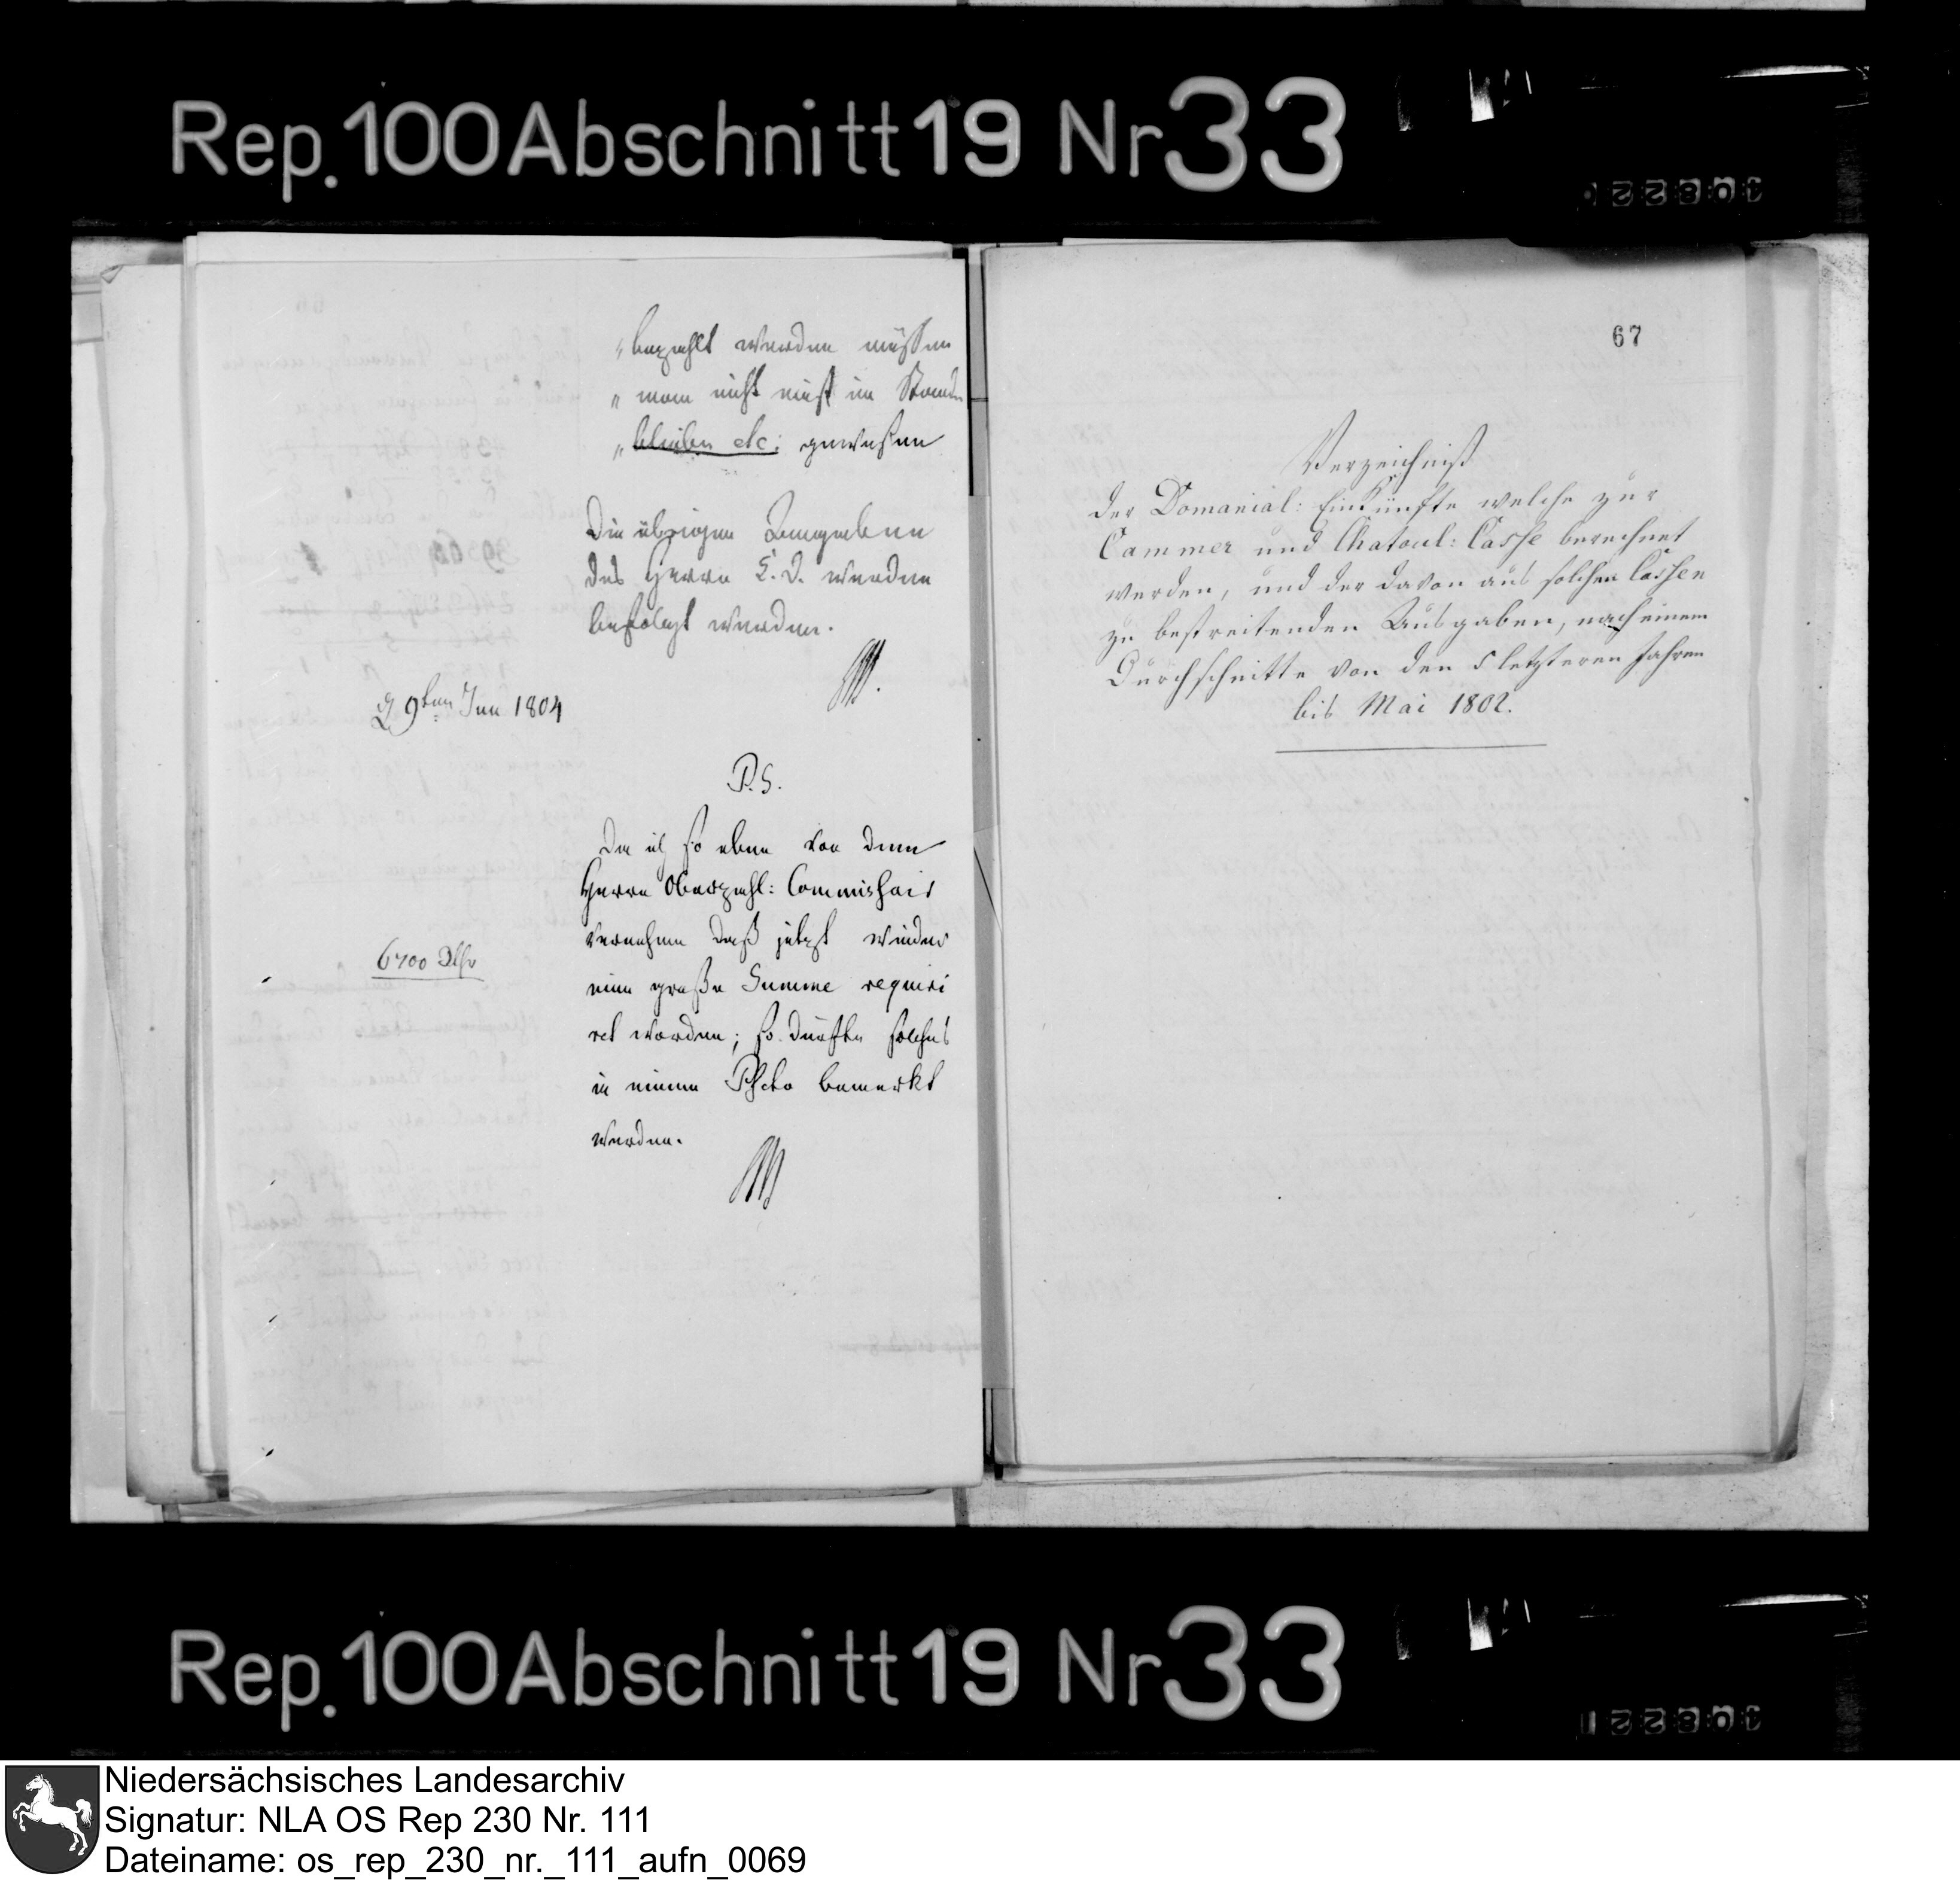 Rep.100Abschnitt19 Nr33
„bezahlt werden müssen
„man nicht mich im Stande
„bleiben etc: gewesen
Die übrigen
des Herrn L. D. werden
befolgt werden.
d 9ten Jun 1804
P.S.
Da ich so eben von dem
Herrn Oberzahl: Commissair
vernehme daß jetzt wieder
eine große Summe requiri
ret worden; so dürfte solches
in einem Pscto bemerkt
werden.
6700 Thlr
67
Verzeichniß
der Domanial: Einkünfte welche zur
Cammer und Chatoul: Casse berechnet
werden, und der davon aus solchen Cassen
zu bestreitenden Ausgaben, nach einem
Durchschnitte von den 5 letzteren Jahren
bis Mai 1802.
Rep.100Abschnitt19 Nr33
Niedersächsisches Landesarchiv
Signatur: NLA OS Rep 230 Nr. 111
Dateiname: os_rep_230_nr._111_aufn_0069